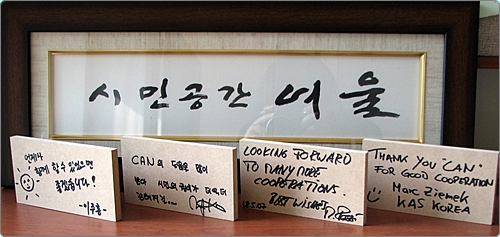 시민공간 여울
언제나
함께 할 수 있었으면
좋겠습니다!
-이주흥-
CAN의 마음을 많이
받아 시민의 권리가 더욱더
LOOKING FORWARD
TO MANY MORE
COOPERATIONS.
18.5.07 BEST WISHES
THANK YOU "CAN"
FOR GOOD COOPERATION
Marc Ziemek
KAS KOREA